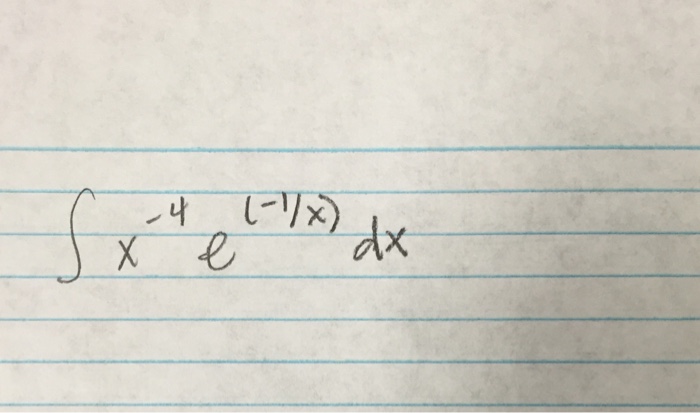 ∫ x⁻⁴ e^(-1/x) dx